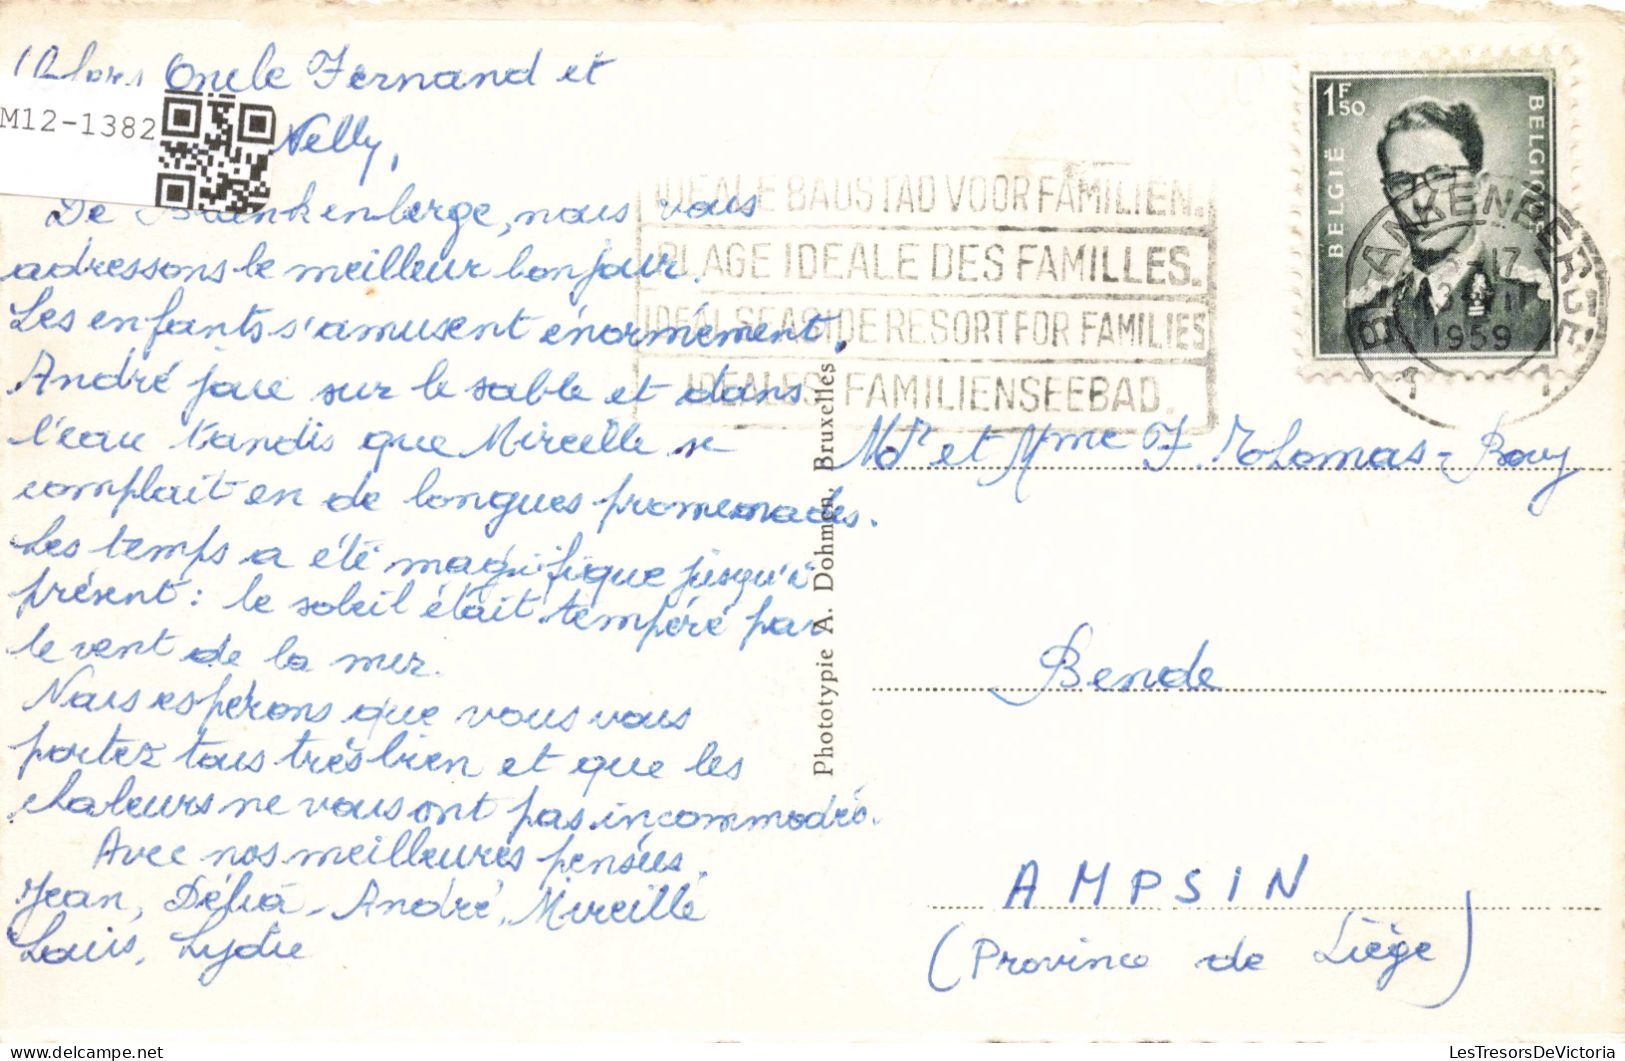 Chers Oncle Fernand et
Nelly,
De Blankenberge, nous vous
adressons le meilleur bonjour.
Les enfants s'amusent énormément.
André joue sur le sable et dans
l'eau tandis que Mireille se
complait en de longues promenades.
Les temps a été magnifique jusqu'à
présent : le soleil était tempéré par
le vent de la mer.
Nous espérons que vous vous
portez tous très bien et que les
chaleurs ne vous ont pas incommodés.
Avec nos meilleures pensées.
Jean, Délia - André, Mireille
Louis, Lydie
M12-1382
IDEALE BADSTAD VOOR FAMILIEN.
PLAGE IDEALE DES FAMILLES.
IDEAL SEASIDE RESORT FOR FAMILIES
IDEALES FAMILIENSEEBAD.
1F50
BELGIË
BELGIQUE
BLANKENBERGE
17
1959
1 1
Phototypie A. Dohmen, Bruxelles
Mr et Mme F.
Bende
AMPSIN
(Province de Liège)
LesTresorsDeVictoria.com